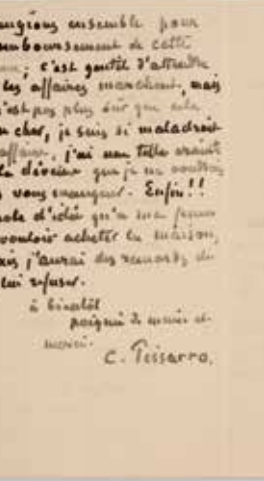 ensemble pour
de cette
; c'est gentil d'attendre
les affaires marchent, mais
n'est pas plus sûr que cela
cher, je suis si maladroit
affaires, j'ai une telle crainte
que je ne voudrais
vous ennuyer. Enfin!!
d'idée qu'a ma femme
vouloir acheter la maison,
j'aurai des remords de
lui refuser.
à bientôt
poignée de mains et
merci.
C. Pissarro.